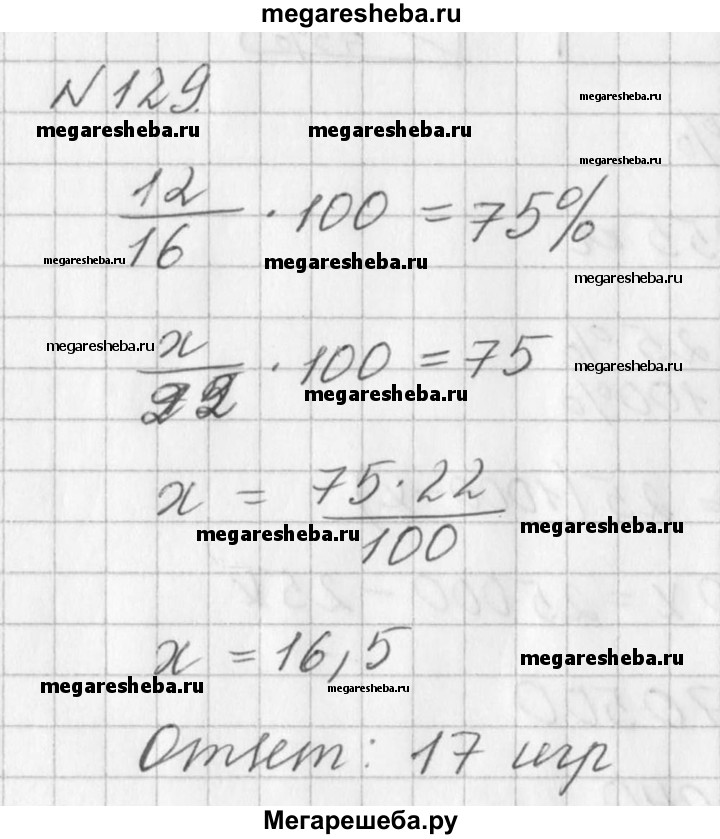 megaresheba.ru
N 129.
megaresheba.ru
megaresheba.ru megaresheba.ru
megaresheba.ru
12/16 · 100 = 75%
megaresheba.ru megaresheba.ru
megaresheba.ru
megaresheba.ru
x/22 · 100 = 75
megaresheba.ru
megaresheba.ru
x = 75·22/100
megaresheba.ru megaresheba.ru
x = 16,5
megaresheba.ru
megaresheba.ru megaresheba.ru
Ответ: 17 игр
Мегарешеба.ру